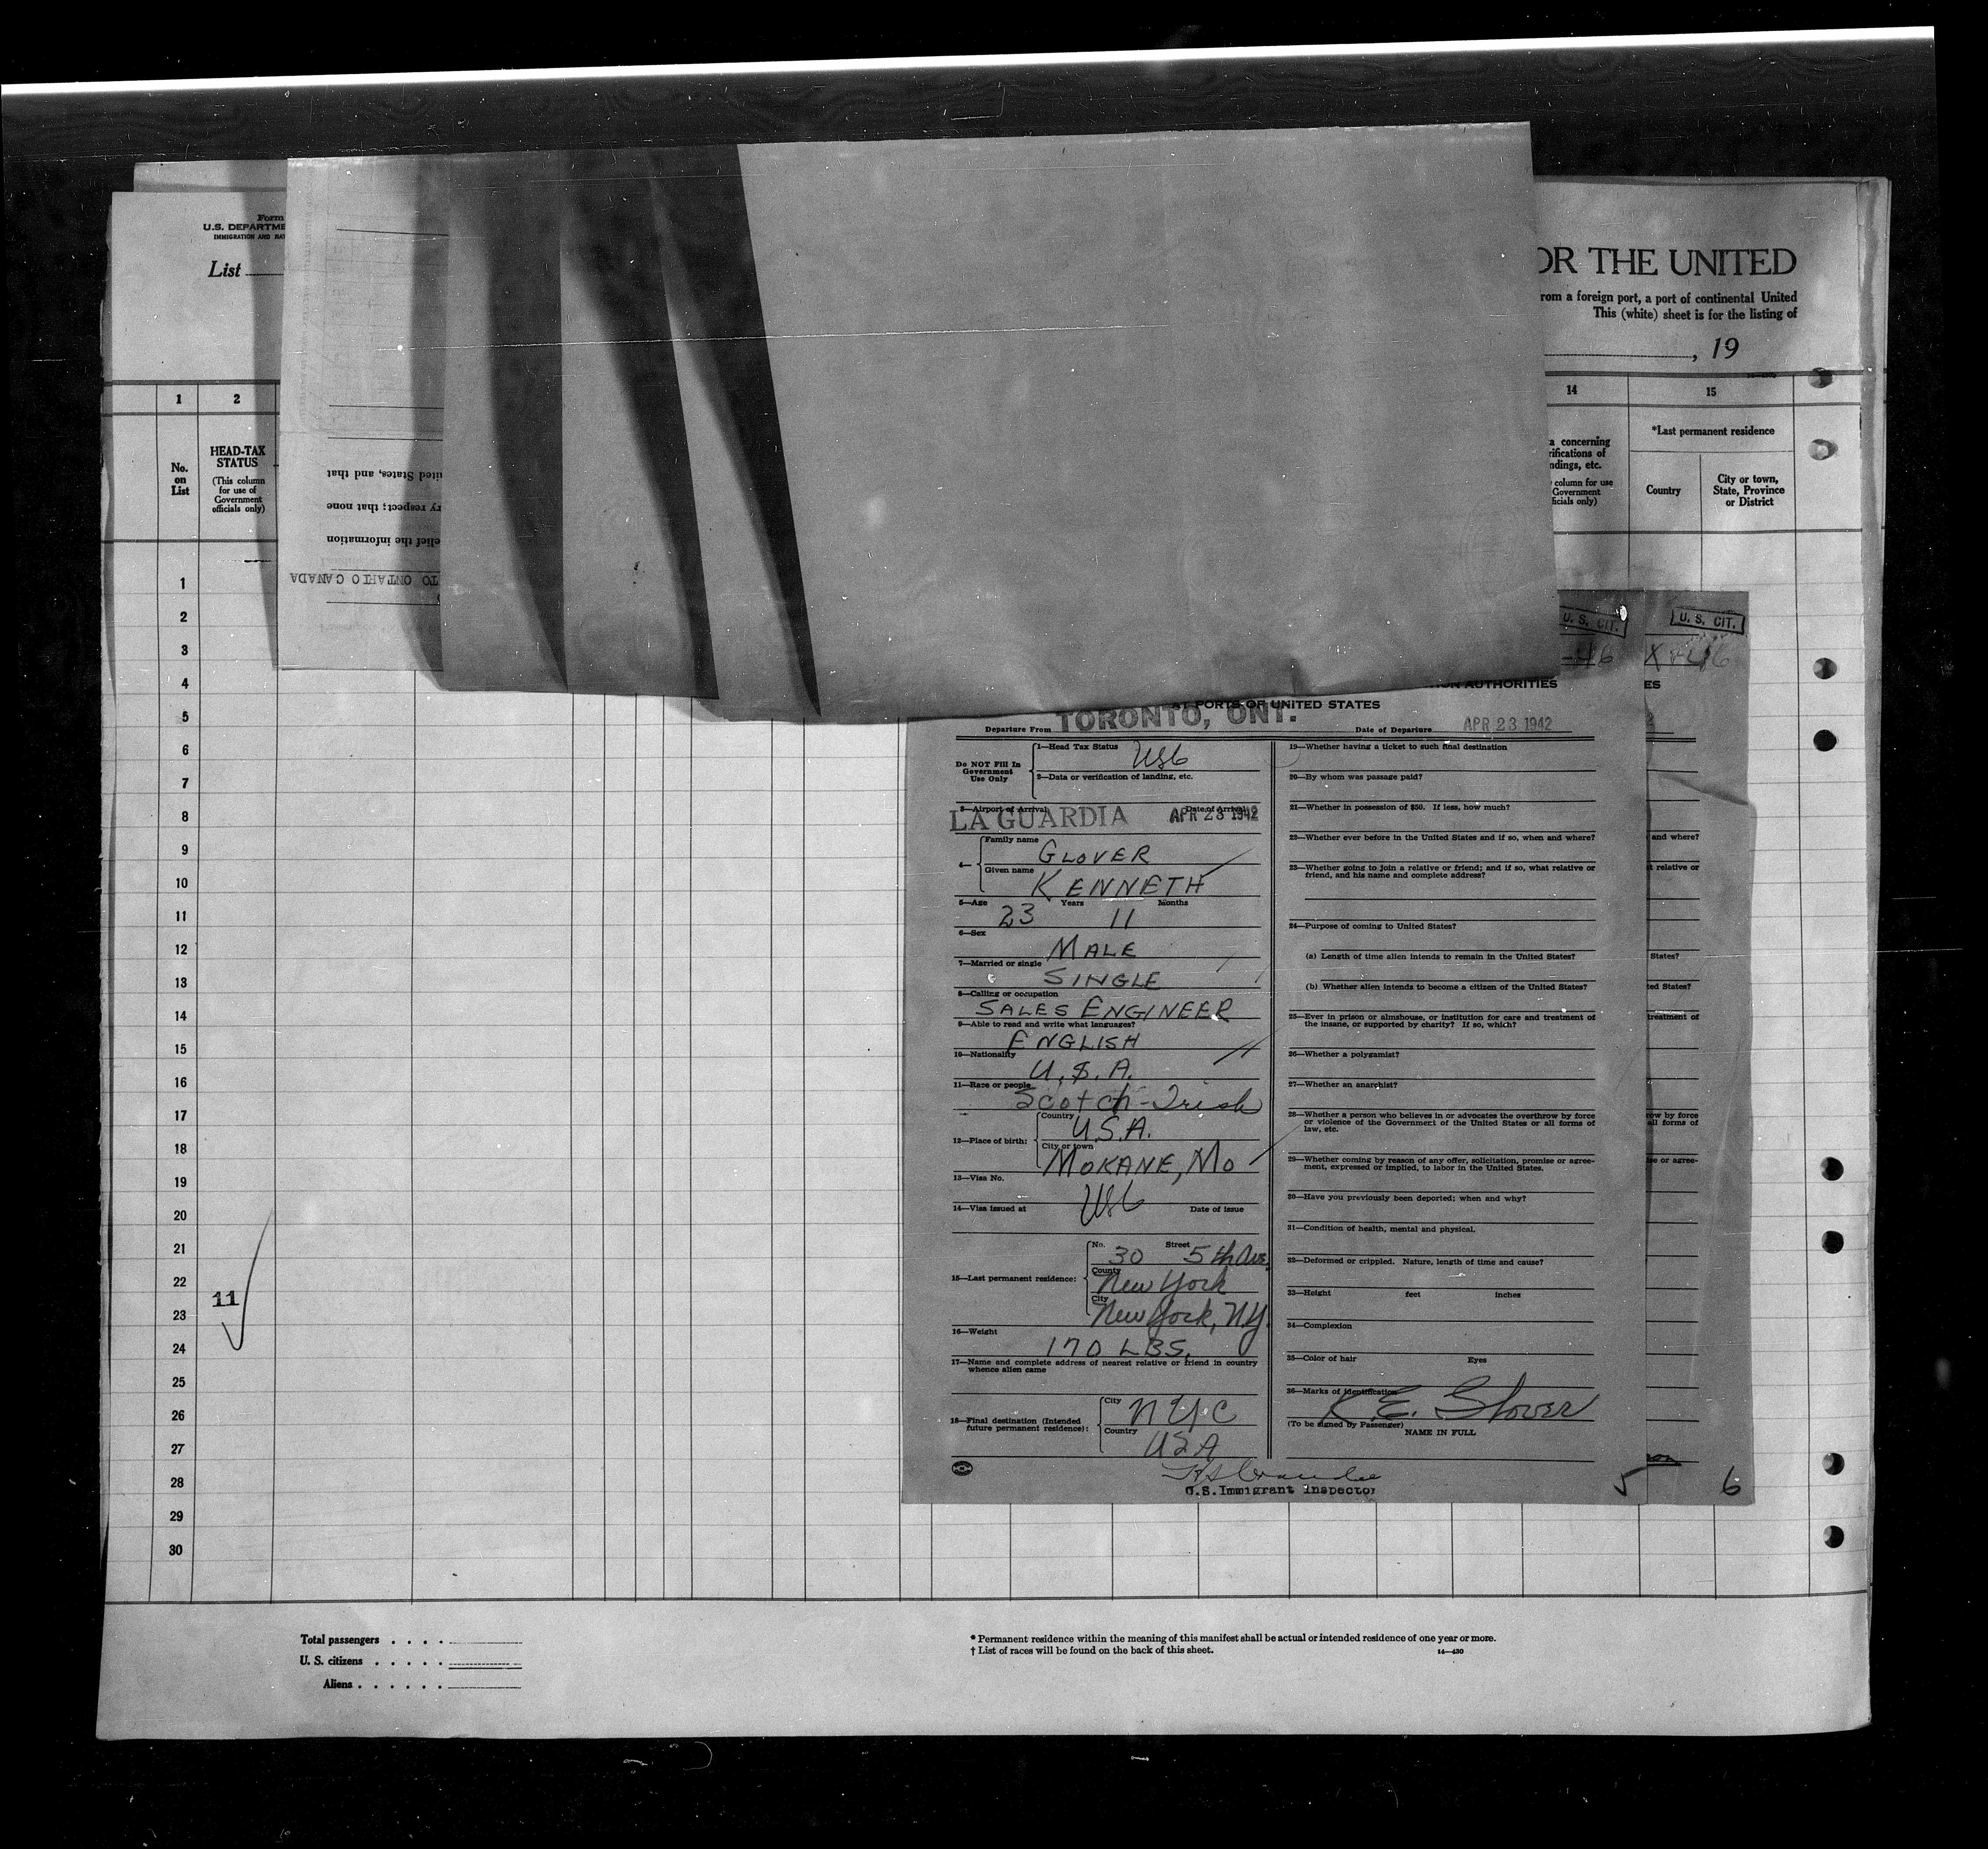 Form
U.S. DEPARTME
IMMIGRATION AND NAT
List
OR THE UNITED
rom a foreign port, a port of continental United
This (white) sheet is for the listing of
, 19
1 2 14 15
No. on List
HEAD-TAX STATUS
(This column for use of Government officials only)
a concerning
rifications of
ndings, etc.
column for use
Government
ficials only)
*Last permanent residence
Country
City or town, State, Province or District
ited States, and that
ry respect; that none
elief the information
TO ONTARIO CANADA
1
2
3
4
5
6
7
8
9
10
11
12
13
14
15
16
17
18
19
20
21
22
11
23
24
25
26
27
28
29
30
U. S. CIT.
U. S. CIT.
-46
X-46
ON AUTHORITIES
ES
AT PORTS OF UNITED STATES
Departure From TORONTO, ONT. Date of Departure APR 23 1942
Do NOT Fill In Government Use Only
1—Head Tax Status
USC
2—Data or verification of landing, etc.
3—Airport of Arrival Date of Arrival
LA GUARDIA APR 23 1942
4—
Family name
GLOVER
Given name
KENNETH
5—Age 23 Years 11 Months
6—Sex
MALE
7—Married or single
SINGLE
8—Calling or occupation
SALES ENGINEER
9—Able to read and write what languages?
ENGLISH
10—Nationality
U.S.A.
11—Race or people
Scotch-Irish
12—Place of birth:
Country
U.S.A.
City or town
MOKANE, MO
13—Visa No.
USC
14—Visa issued at Date of issue
15—Last permanent residence:
No. 30 Street 5th Ave.
County
New York
City
New York, N.Y.
16—Weight
170 LBS.
17—Name and complete address of nearest relative or friend in country
whence alien came
18—Final destination (Intended
future permanent residence):
City
NYC
Country
USA
19—Whether having a ticket to such final destination
20—By whom was passage paid?
21—Whether in possession of $50. If less, how much?
22—Whether ever before in the United States and if so, when and where?
23—Whether going to join a relative or friend; and if so, what relative or
friend, and his name and complete address?
24—Purpose of coming to United States?
(a) Length of time alien intends to remain in the United States?
(b) Whether alien intends to become a citizen of the United States?
25—Ever in prison or almshouse, or institution for care and treatment of
the insane, or supported by charity? If so, which?
26—Whether a polygamist?
27—Whether an anarchist?
28—Whether a person who believes in or advocates the overthrow by force
or violence of the Government of the United States or all forms of
law, etc.
29—Whether coming by reason of any offer, solicitation, promise or agree-
ment, expressed or implied, to labor in the United States.
30—Have you previously been deported; when and why?
31—Condition of health, mental and physical.
32—Deformed or crippled. Nature, length of time and cause?
33—Height feet inches
34—Complexion
35—Color of hair Eyes
36—Marks of identification
K. E. Glover
(To be signed by Passenger)
NAME IN FULL
U.S. Immigrant Inspector
5
and where?
t relative or
States?
ted States?
treatment of
ow by force
all forms of
se or agree-
6
Total passengers
U. S. citizens
Aliens
* Permanent residence within the meaning of this manifest shall be actual or intended residence of one year or more.
† List of races will be found on the back of this sheet.